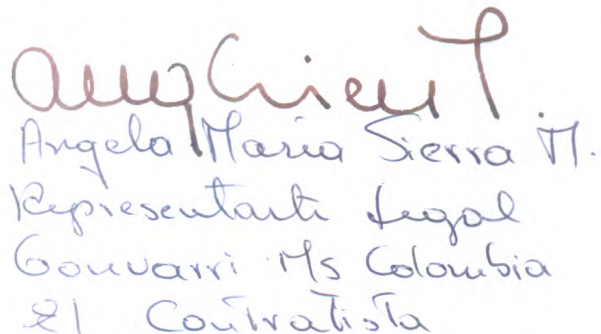 Angela Maria Sierra M.
Representante Legal
Gonvarri Ms Colombia
El Contratista